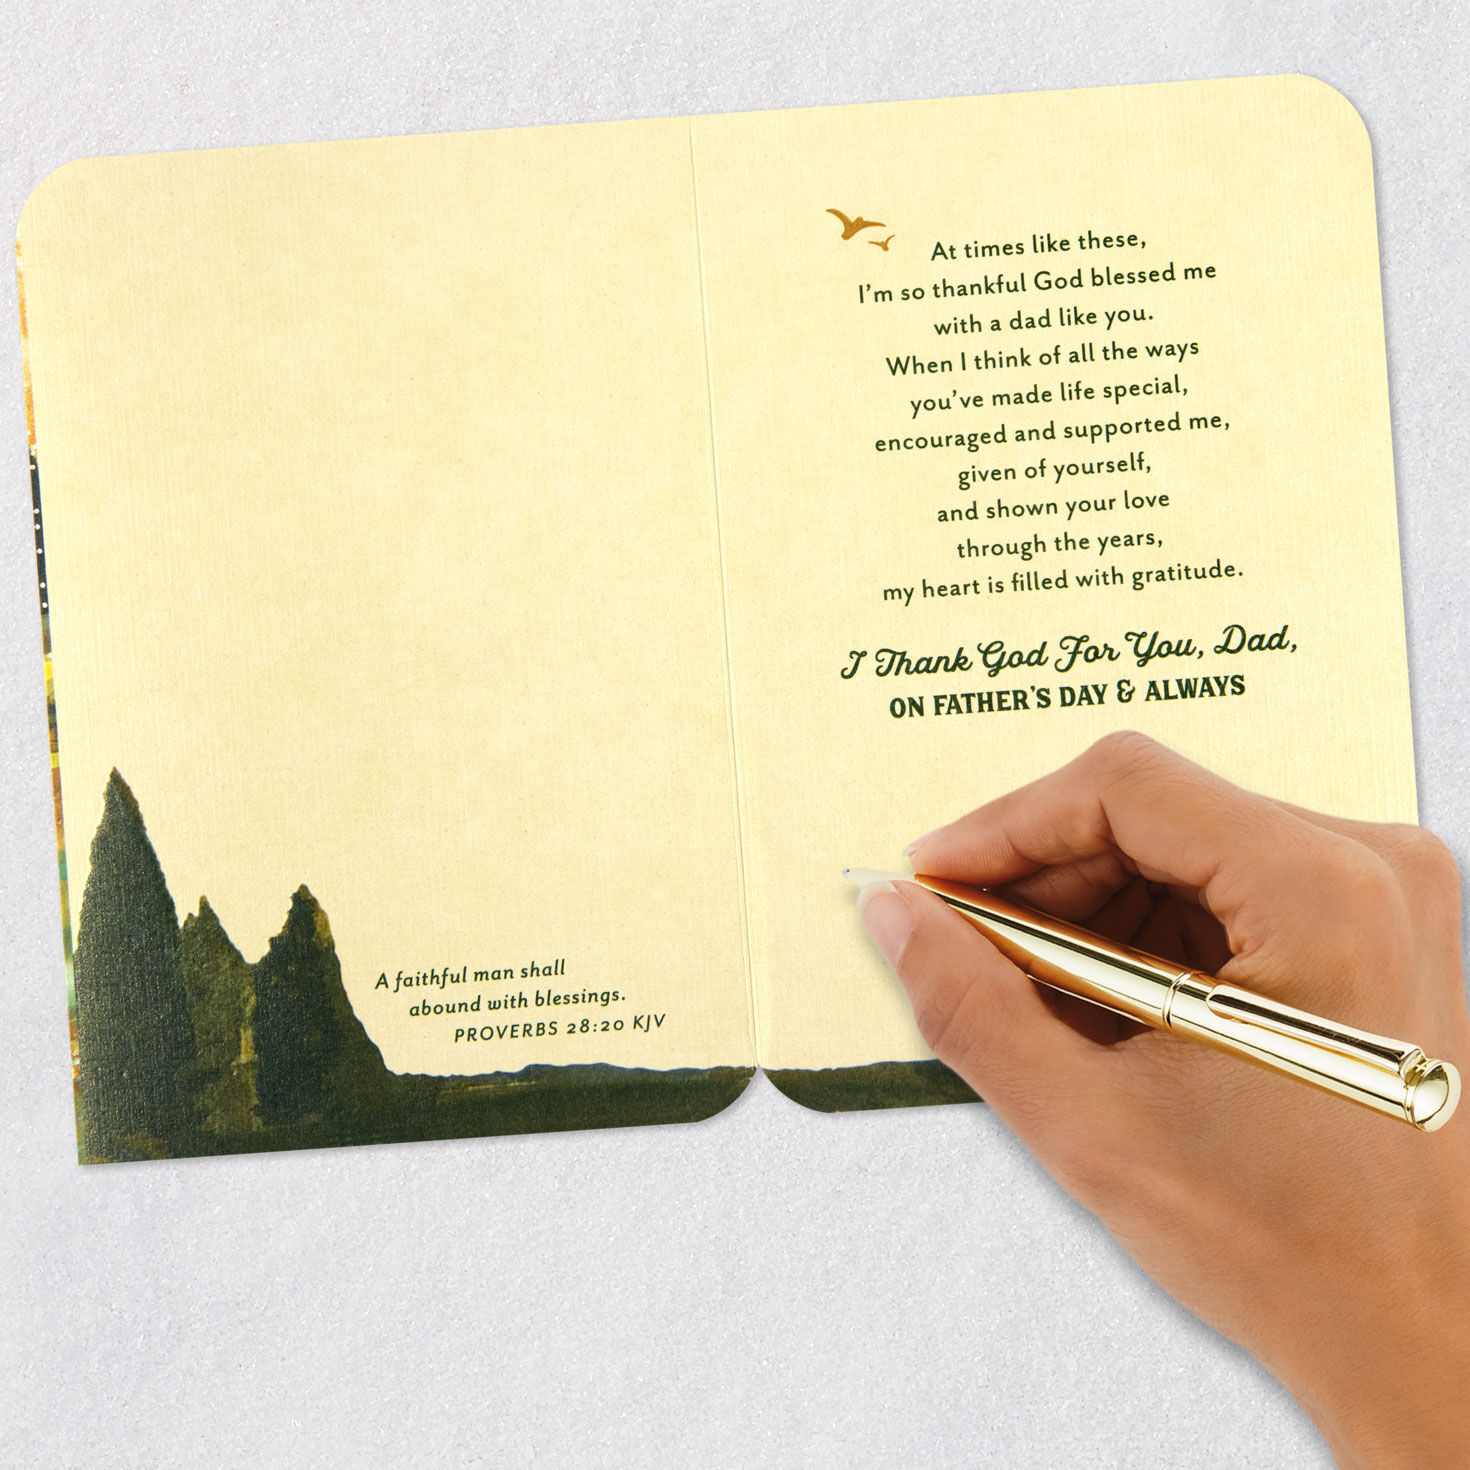 A faithful man shall
abound with blessings.
PROVERBS 28:20 KJV
At times like these,
I'm so thankful God blessed me
with a dad like you.
When I think of all the ways
you've made life special,
encouraged and supported me,
given of yourself,
and shown your love
through the years,
my heart is filled with gratitude.
I Thank God For You, Dad,
ON FATHER'S DAY & ALWAYS